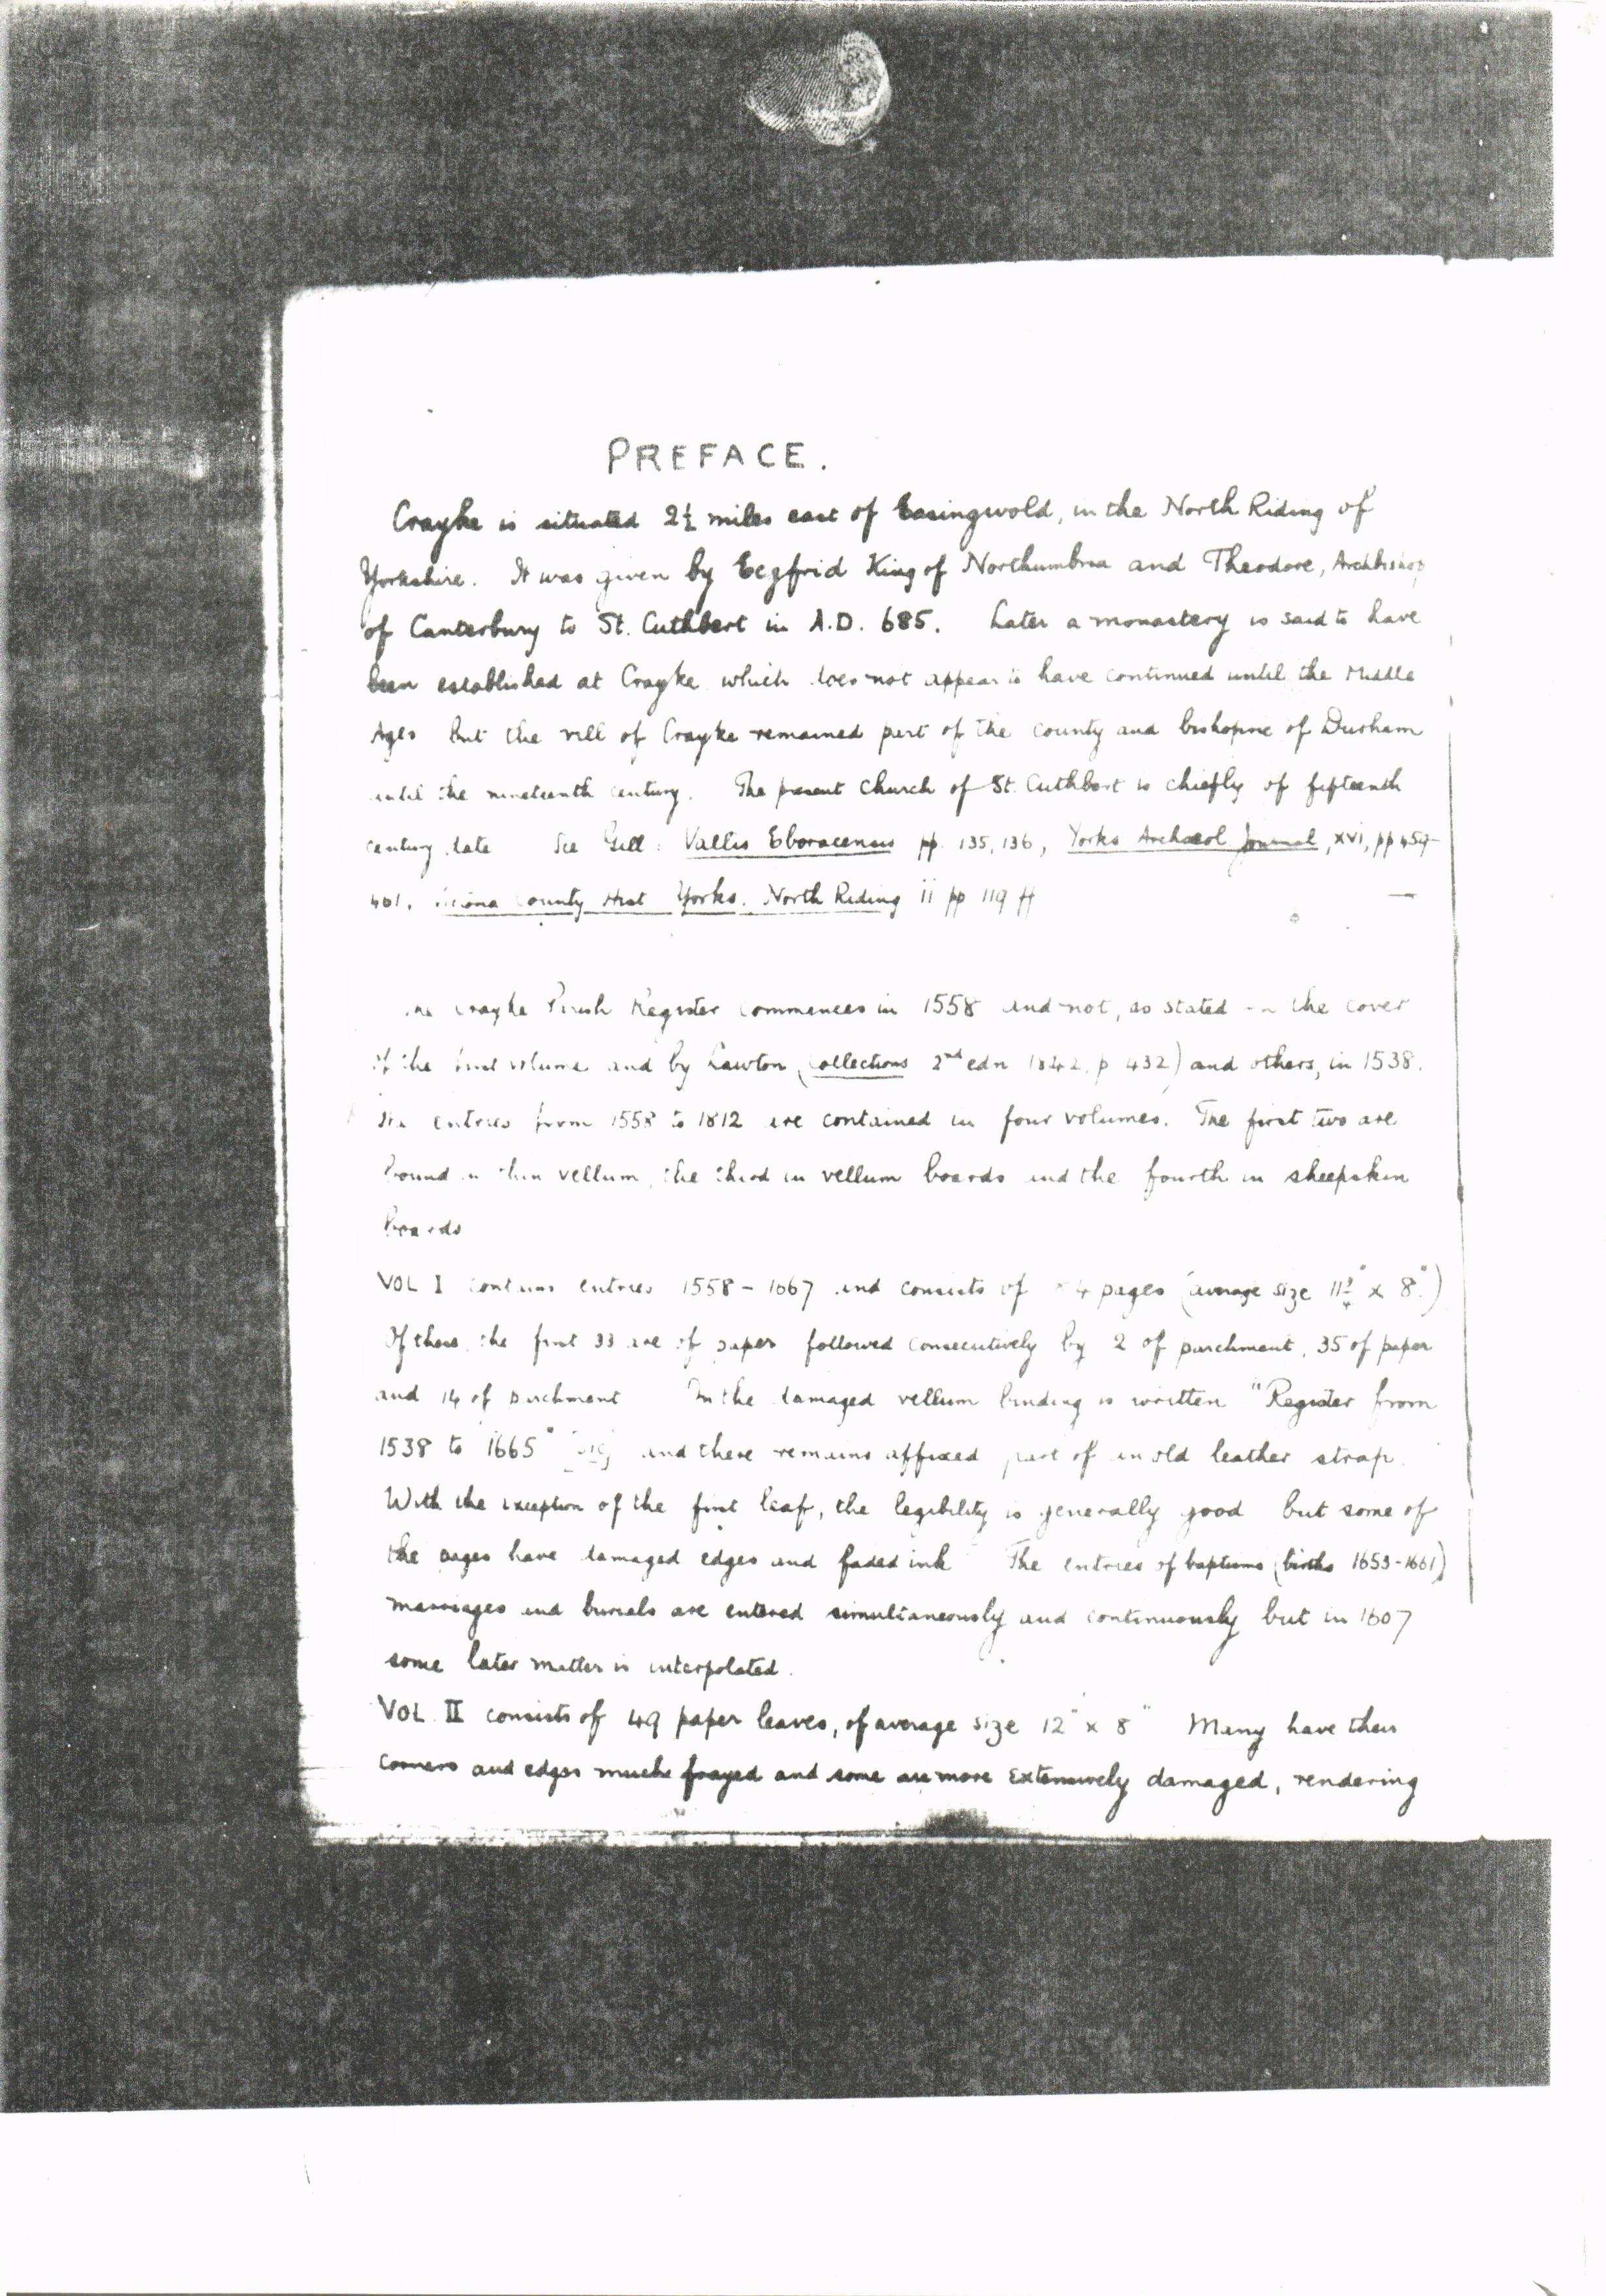 PREFACE.
Crayke is situated 2½ miles east of Easingwold, in the North Riding of
Yorkshire. It was given by Ecgfrid King of Northumbria and Theodore, Archbishop
of Canterbury to St. Cuthbert in A.D. 685. Later a monastery is said to have
been established at Crayke which does not appear to have continued until the Middle
Ages but the vill of Crayke remained part of the county and bishopric of Durham
until the nineteenth century. The present church of St. Cuthbert is chiefly of fifteenth
century date See Gill: Vallis Eboracensis pp. 135, 136, Yorks Archaeol Journal, xvi, pp 459-
County Hist Yorks. North Riding ii pp 119 ff
Crayke Parish Register commences in 1558 and not, as stated on the cover
of the first volume and by Lawton (Collections 2nd edn 1842. p 432) and others, in 1538.
The entries from 1558 to 1812 are contained in four volumes. The first two are
bound in thin vellum, the third in vellum boards and the fourth in sheepskin
boards
VOL I contains entries 1558 - 1667 and consists of pages (average size 11¾" x 8".)
Of these the first 33 are of paper followed consecutively by 2 of parchment, 35 of paper
and 14 of parchment the damaged vellum binding is written "Register from
1538 to 1665" [sic] and there remains affixed part of an old leather strap.
With the exception of the first leaf, the legibility is generally good but some of
the pages have damaged edges and faded ink The entries of baptisms (births 1653-1661)
marriages and burials are entered simultaneously and continuously but in 1607
some later matter is interpolated.
VOL. II consists of 49 paper leaves, of average size 12" x 8" Many have their
corners and edges much frayed and some are more extensively damaged, rendering